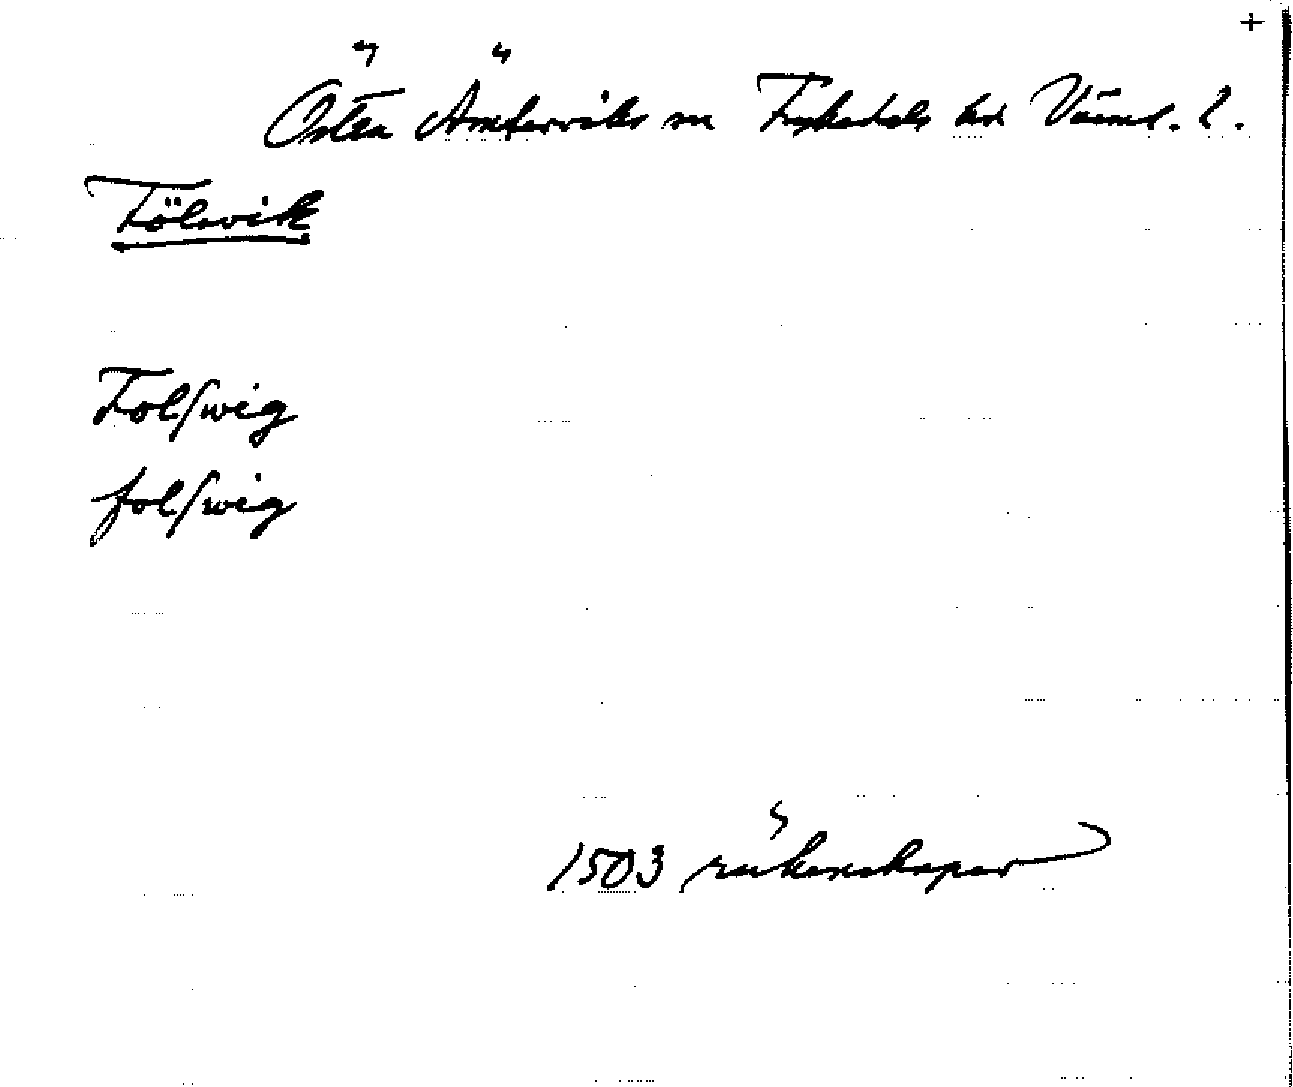 +
Östra Ämterviks sn Fryksdals hd Värml. l.
Fölsvik
Folſwig
folſwig
1503 räkenskaper